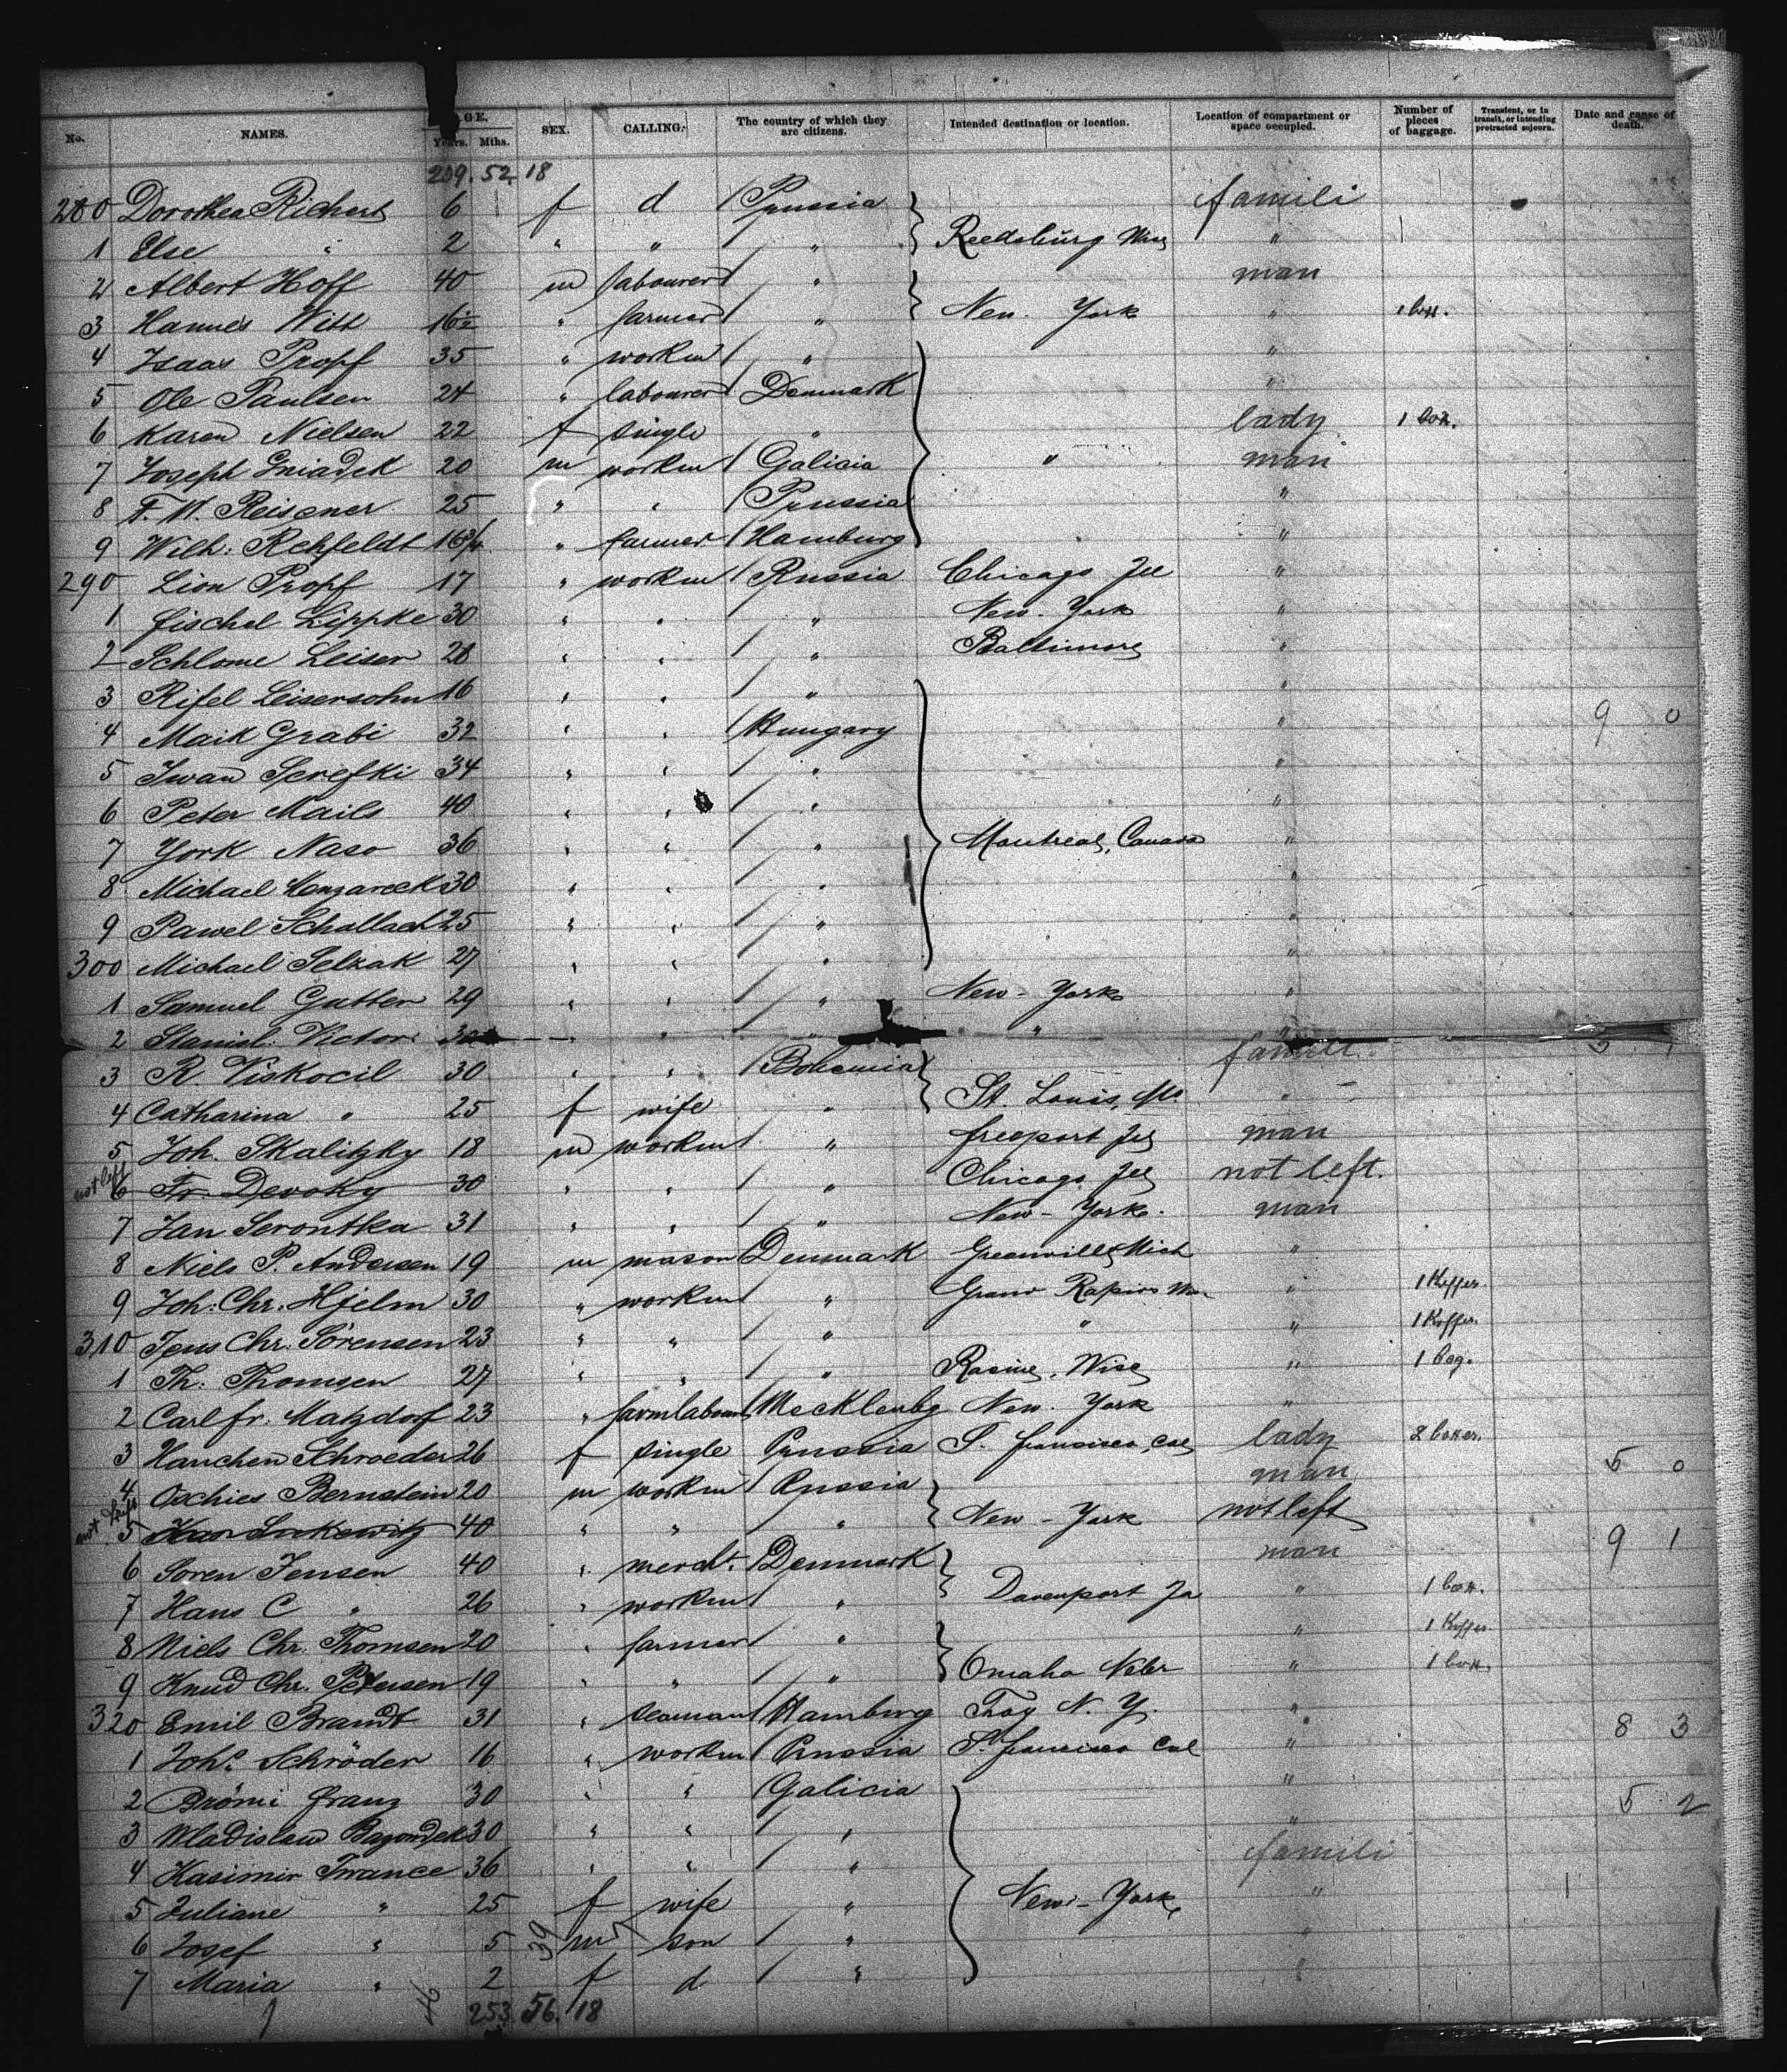 No. NAMES. AGE. Years. Mths. SEX. CALLING. The country of which they are citizens. Intended destination or location. Location of compartment or space occupied. Number of pieces of baggage. Transient, or in transit, or intending protracted sojourn. Date and cause of death.
209. 52. 18
280 Dorothea Richert 6 f d Prussia famili
1 Else " 2 " " " Reedsburg Wisc "
2 Albert Hoff 40 m labourer " man
3 Hannes Witt 16½ " farmer " New-York " 1 box.
4 Isaas Propf 35 " workm " "
5 Ole Paulsen 24 " labourer Denmark "
6 Karen Nielsen 22 f single " lady 1 box.
7 Joseph Gniadek 20 m workm Galicia " man
8 F. W. Reisener 25 " " Prussia "
9 Wilh: Rehfeldt 16¾ " farmer Hamburg "
290 Lion Propf 17 " workm Russia Chicago Ill "
1 Fischel Lippke 30 " " " New-York "
2 Schlome Leiser 28 " " " Baltimore "
3 Rifel Leisersohn 16 " " " "
4 Maik Grabi 32 " " Hungary " 9 0
5 Iwan Serefki 34 " " " "
6 Peter Mails 40 " " " "
7 York Naso 36 " " " Montreal, Canada "
8 Michael 30 " " " "
9 Pawel Schallach 25 " " " "
300 Michael Selzak 27 " " " "
1 Samuel Gutter 29 " " " New-York "
2 Stanisl. Victor " " " " "
3 R. Viskocil 30 " " Bohemia famili
4 Catharina " 25 f wife " St. Louis, Mo "
5 Joh. Skalitzky 18 m workm " Freeport Ill man
not left 6 Fr. Devoky 30 " " " Chicago Ill not left.
7 Jan Serontka 31 " " " New-York. man
8 Niels P. Andersen 19 m mason Denmark Greenville Mich "
9 Joh: Chr. Hjelm 30 " workm " Grand Rapids " 1 Koffer.
310 Jens Chr. Sörensen 23 " " " " " 1 Koffer.
1 Th: Thomsen 27 " " " Racine, Wisc " 1 bag.
2 Carl Fr. Matzdorf 23 " farmlabour Mecklenbg New-York "
3 Hanchen Schroeder 26 f single Prussia S. Francisco, Cal lady 2 boxes.
4 Oschies Bernstein 20 m workm Russia man 5 0
not left 5 40 " " " New-York not left
6 Soren Jensen 40 " mercht. Denmark man 9 1
7 Hans C " 26 " workm " Davenport Ja " 1 box.
8 Niels Chr. Thomsen 20 " farmer " " 1 Koffer
9 Knud Chr. Petersen 19 " " " Omaha Nebr " 1 box.
320 Emil Brandt 31 " seaman Hamburg Troy N. Y. "
1 Johs. Schröder 16 " workm Prussia S. Francisco Cal " 8 3
2 Brömi Franz 30 " " Galicia "
3 Wladislaw 30 " " " " 5 2
4 Kasimir Trance 36 " " " famili
5 Juliane " 25 f wife " New-York "
6 Josef " 5 m son " "
7 Maria " 2 f d " "
39
46
253. 56. 18